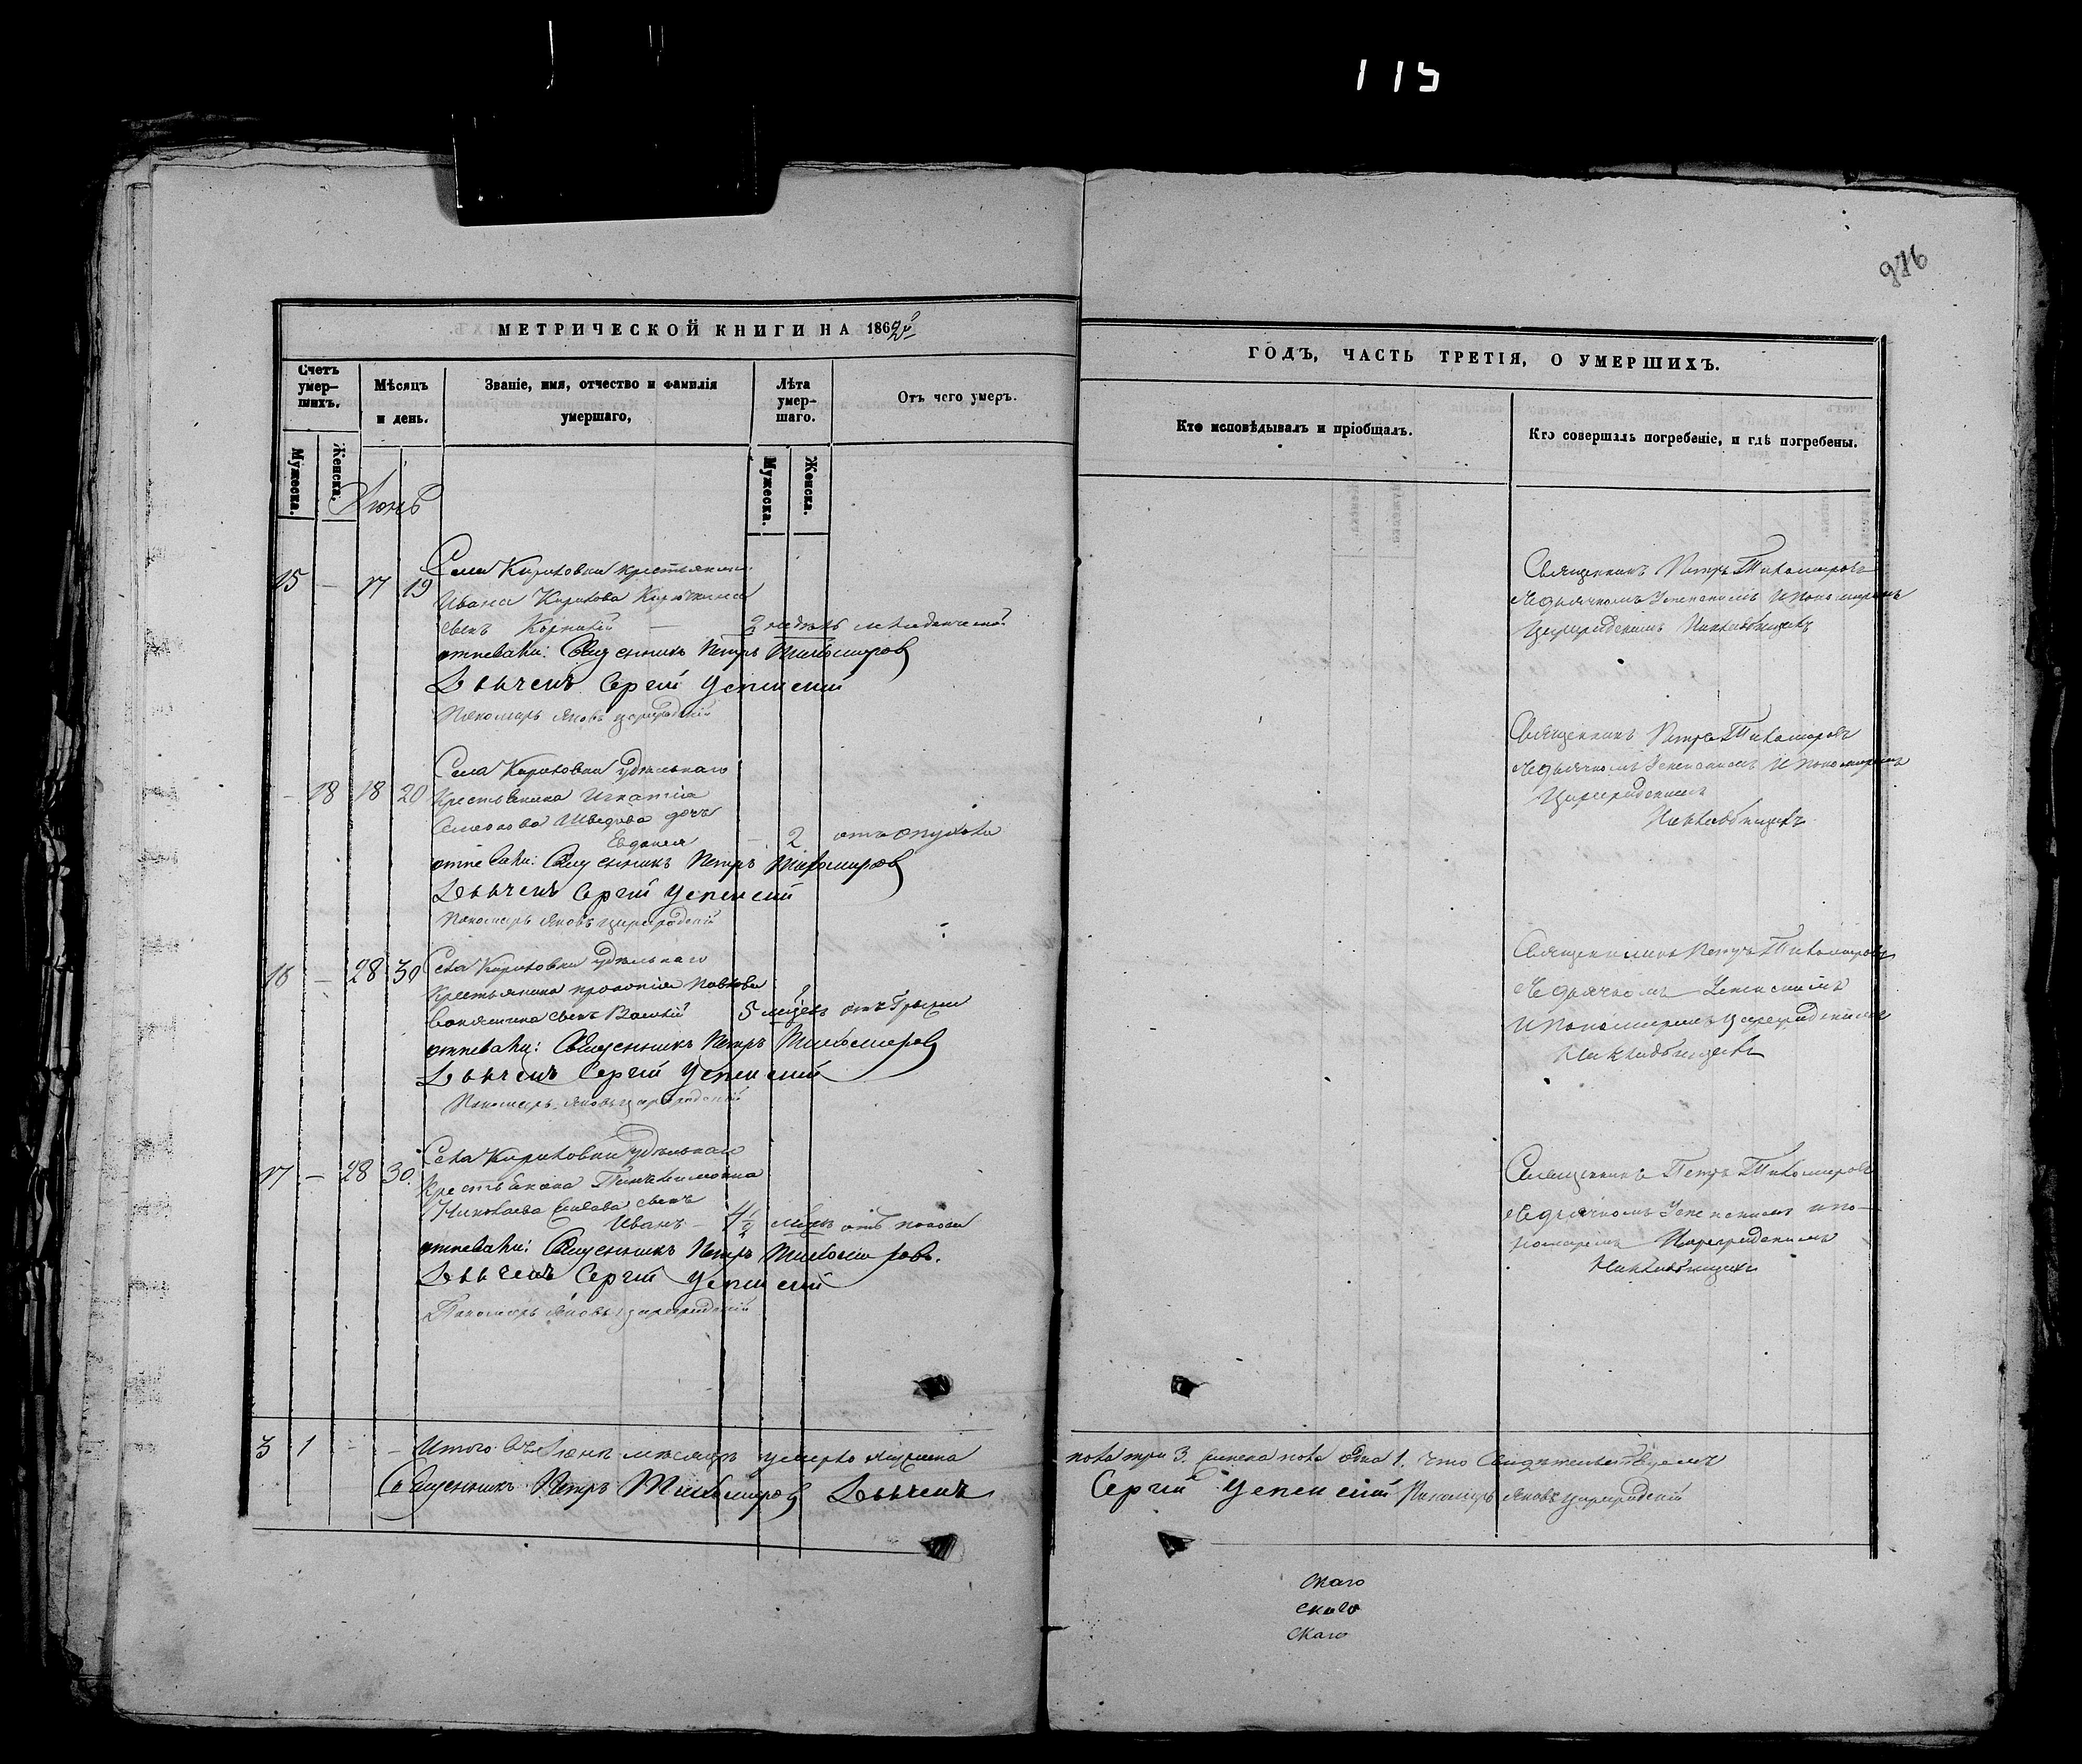 115
276
МЕТРИЧЕСКОЙ КНИГИ НА 1862й
ГОДЪ, ЧАСТЬ ТРЕТІЯ, О УМЕРШИХЪ.
Счетъ умер-шихъ.
Мужеска.
Женска.
Мѣсяцъ и день.
Званіе, имя, отчество и фамилія умершаго,
Лѣта умер-шаго.
Мужеска.
Женска.
Отъ чего умеръ.
Кто исповѣдывалъ и пріобщалъ.
Кто совершалъ погребеніе, и гдѣ погребены.
Іюнь
15 — 17 19
Села Кириловки крестьянина
Ивана Кирилова
сынъ — 2 недѣль младенческой
отпевали: Священникъ Петръ Тихомировъ
Дьячекъ Сергій Успенский
Пономарь Яковъ Цареградскій
Священникъ Петръ Тихомировъ
съ дьячкомъ Успенскимъ и пономаремъ
Цареградскимъ на кладбищѣ
— 18 18 20
Села Кириловки удѣльнаго
Крестьянина Игнатія
Семенова Шведова дочь
Евдокия — 2
отпевали: Священникъ Петръ Тихомировъ
Дьячекъ Сергій Успенский
Пономарь Яковъ Цареградскій
Священникъ Петръ Тихомировъ
съ дьячкомъ Успенскимъ и пономаремъ
Цареградскимъ
на кладбищѣ
16 — 28 30
Села Кириловки удѣльнаго
Крестьянина Прокопія Павлова
сынъ Василій 5 мѣсяц отъ грыжи
отпевали: Священникъ Петръ Тихомировъ
Дьячекъ Сергій Успенский
Пономарь Яковъ Цареградскій
Священникъ Петръ Тихомировъ
съ дьячкомъ Успенскимъ
и пономаремъ Цареградскимъ
на кладбищѣ
17 — 28 30.
Села Кириловки удѣльнаго
Крестьянина
Николаева сынъ
Иванъ — 4 1/2 отъ поноса
отпевали: Священникъ Петръ Тихомировъ.
Дьячекъ Сергій Успенский
Пономарь Яковъ Цареградскій
Священникъ Петръ Тихомировъ
съ дьячкомъ Успенскимъ и по-
номаремъ Цареградскимъ
на кладбищѣ
3 1 - - Итого въ Іюнѣ мѣсяцѣ умерло мужеска
пола три 3. женска пола одна 1. что свидѣтельствуемъ
Священникъ Петръ Тихомировъ Дьячекъ
Сергій Успенский Пономарь Яковъ Цареградскій
скаго
скаго
скаго